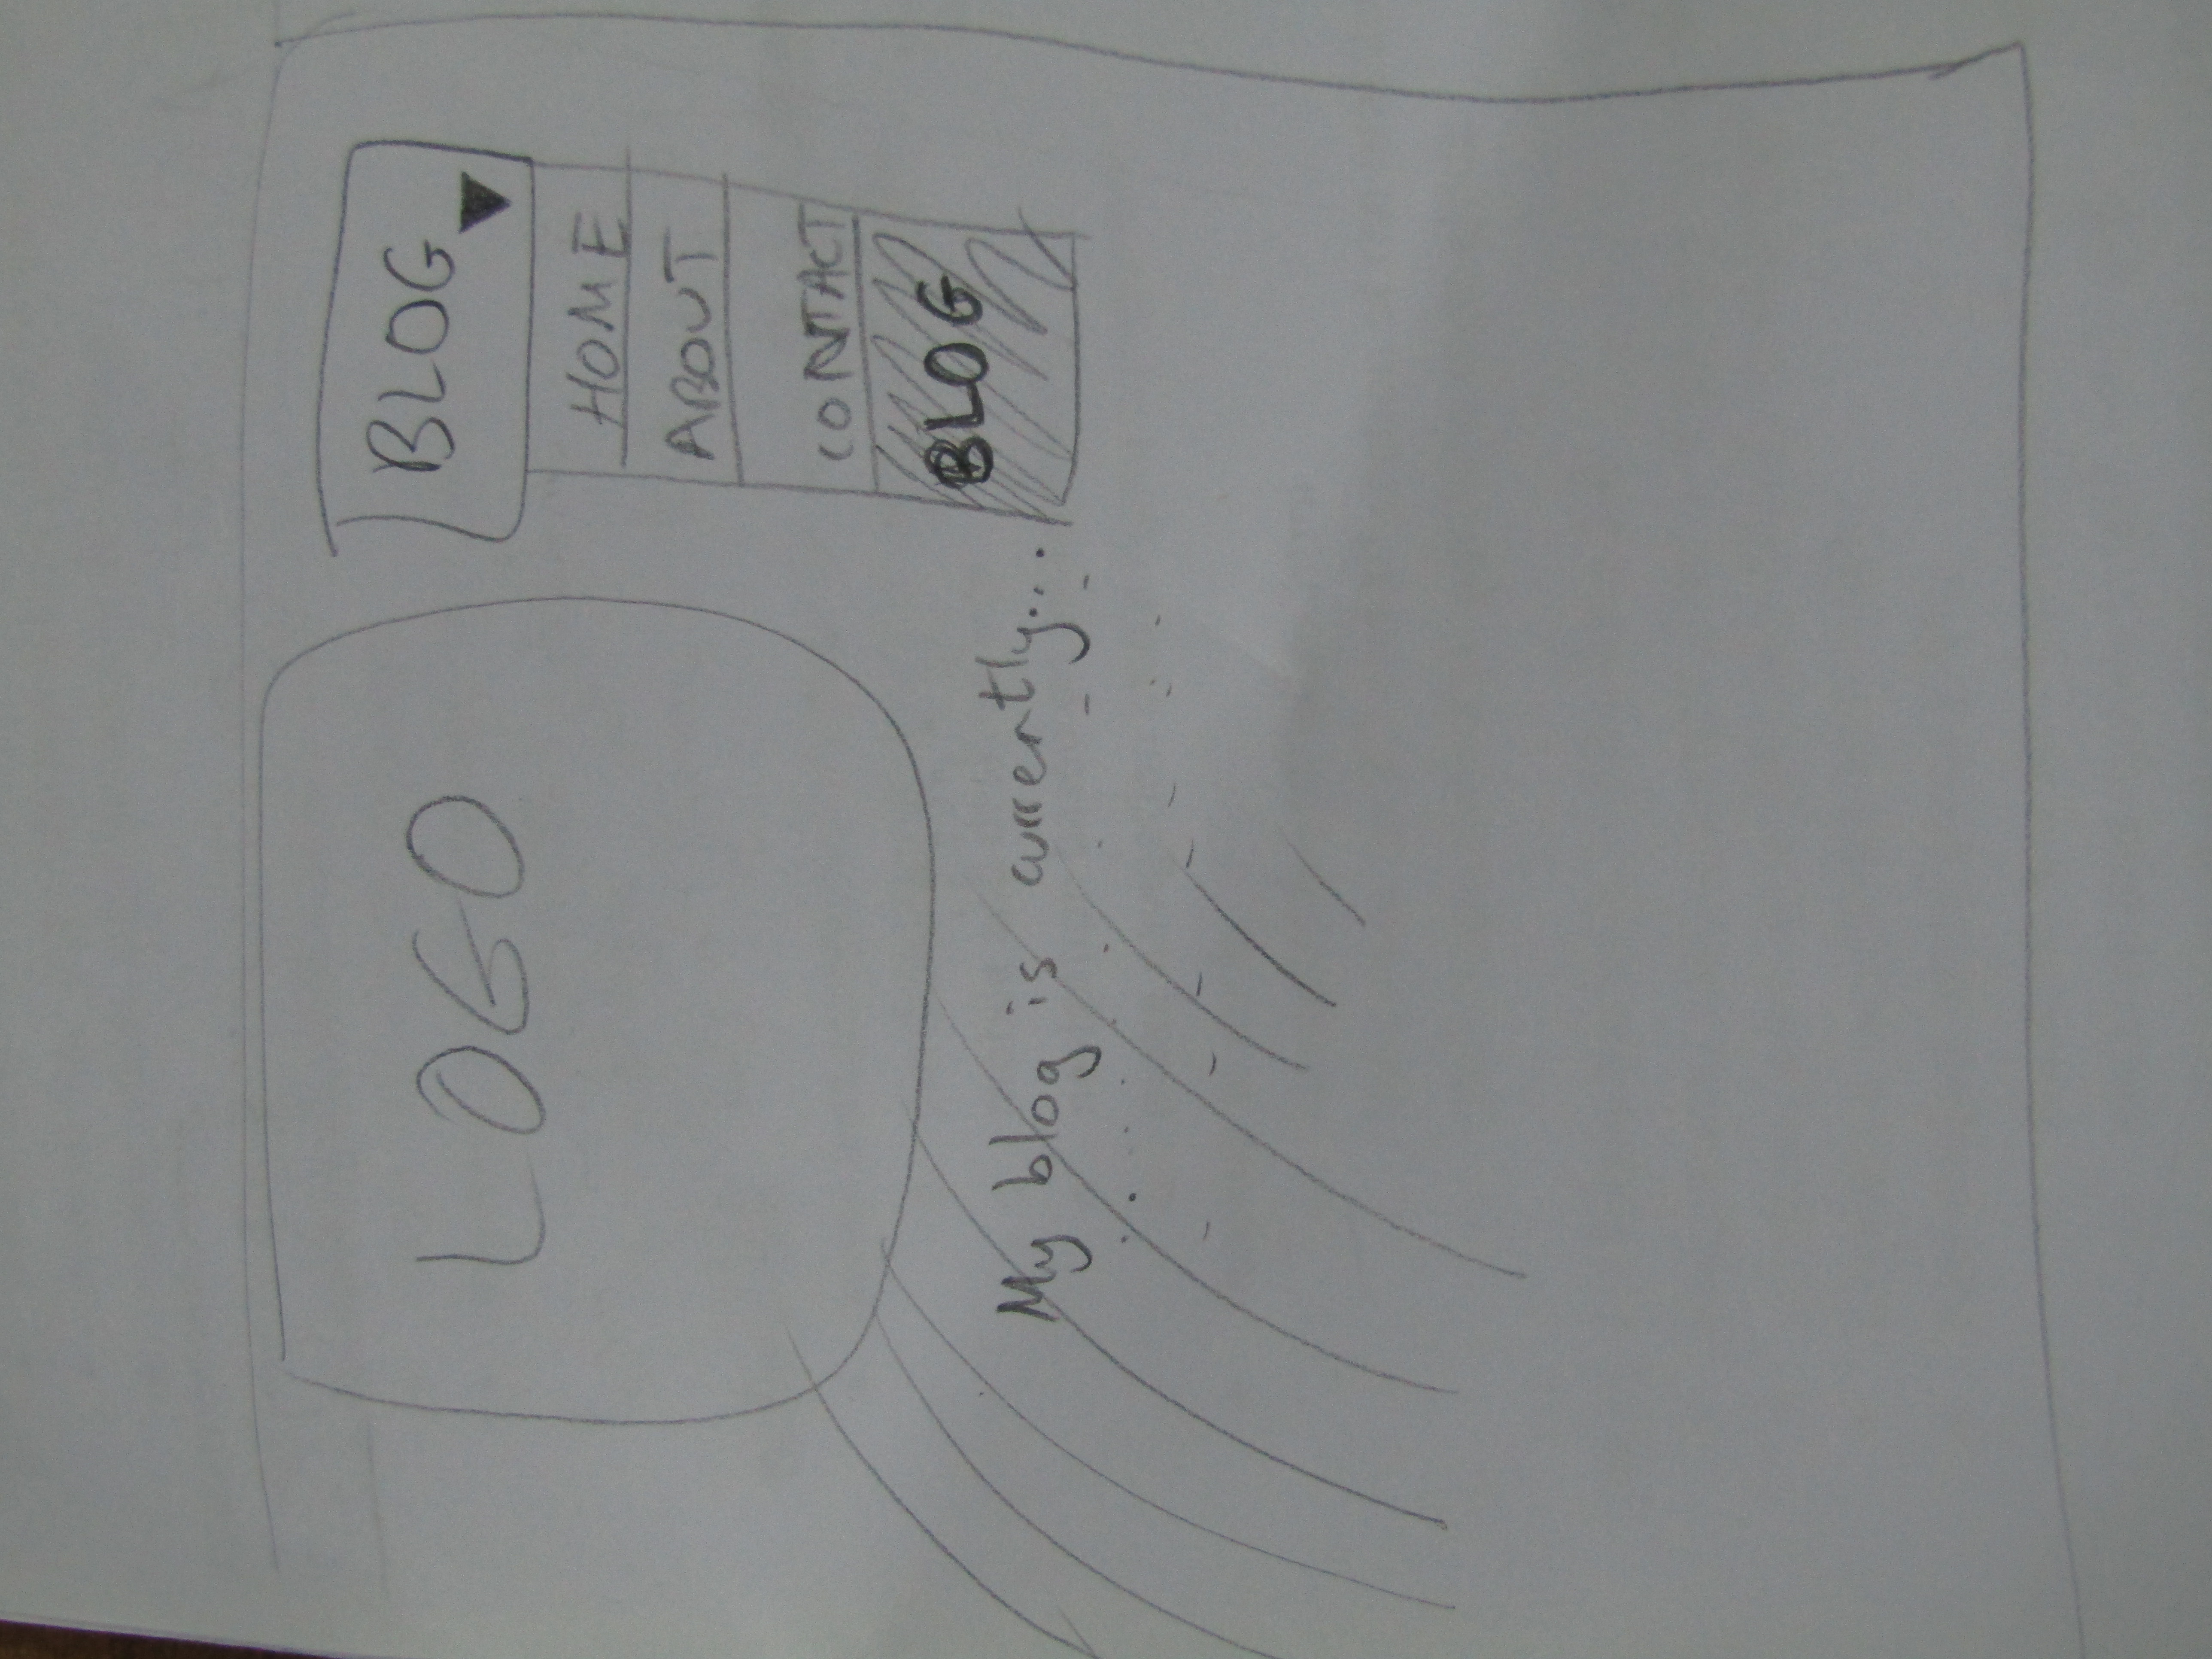 LOGO
BLOG
HOME
ABOUT
CONTACT
BLOG
My blog is currently...